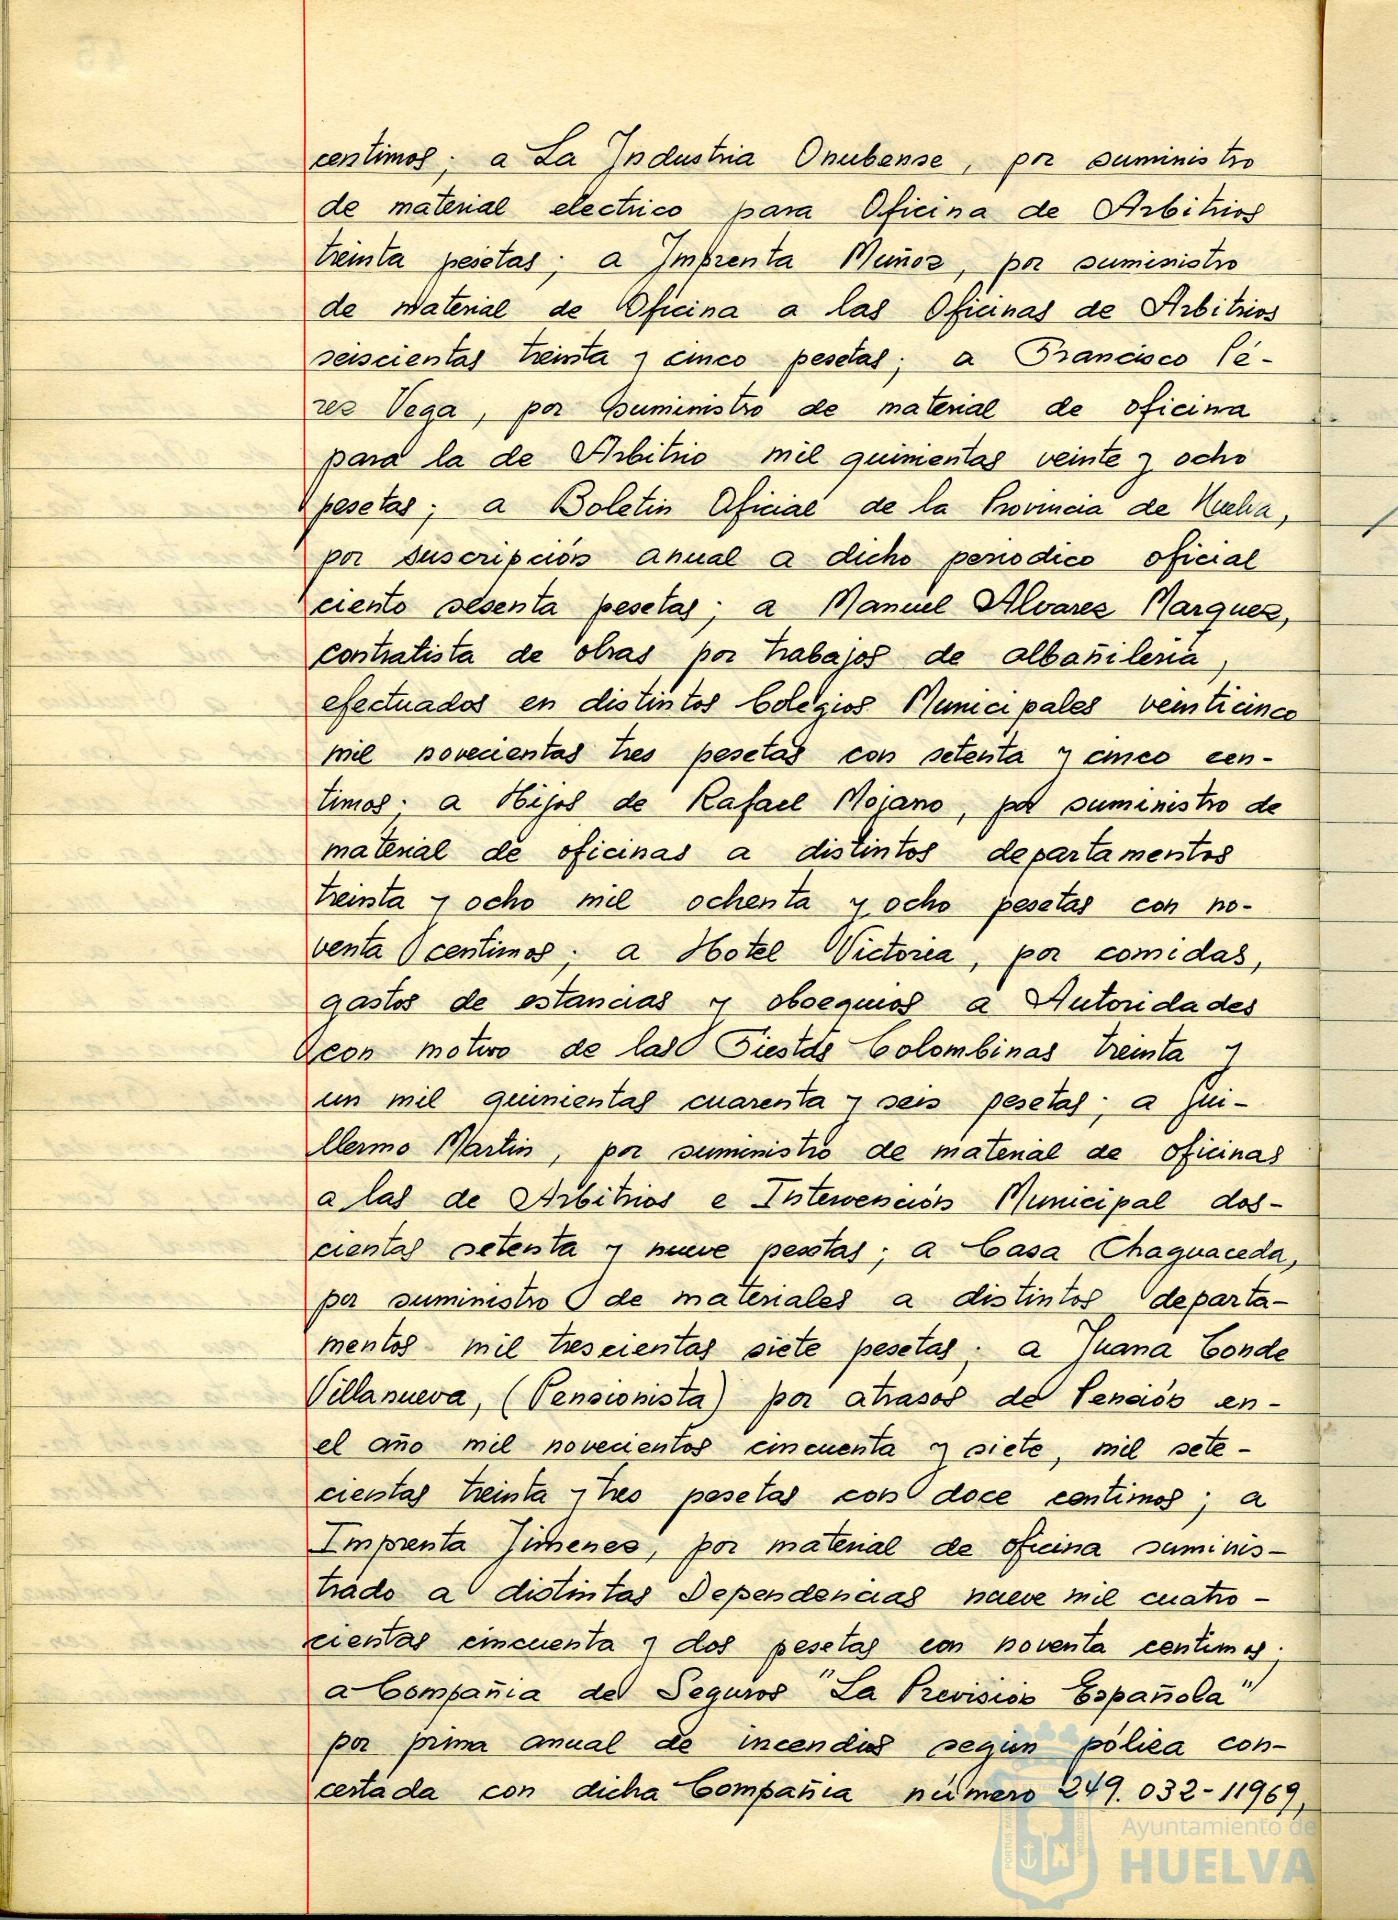 centimos; a La Industria Onubense, por suministro
de material electrico para Oficina de Arbitrios
treinta pesetas; a Imprenta Muñoz, por suministro
de material de Oficina a las Oficinas de Arbitrios
seiscientas treinta y cinco pesetas; a Francisco Pé-
rez Vega, por suministro de material de oficina
para la de Arbitrio mil quinientas veinte y ocho
pesetas; a Boletin Oficial de la Provincia de Huelva,
por suscripción anual a dicho periodico oficial
ciento sesenta pesetas; a Manuel Alvarez Marquez,
contratista de obras por trabajos de albañileria,
efectuados en distintos Colegios Municipales veinticinco
mil novecientas tres pesetas con setenta y cinco cen-
timos; a Hijos de Rafael Mojano, por suministro de
material de oficinas a distintos departamentos
treinta y ocho mil ochenta y ocho pesetas con no-
venta centimos; a Hotel Victoria, por comidas,
gastos de estancias y obsequios a Autoridades
con motivo de las Fiestas Colombinas treinta y
un mil quinientas cuarenta y seis pesetas; a Gui-
llermo Martin, por suministro de material de oficinas
a las de Arbitrios e Intervención Municipal dos-
cientas setenta y nueve pesetas; a Casa Chaguaceda,
por suministro de materiales a distintos departa-
mentos mil trescientas siete pesetas; a Juana Conde
Villanueva, (Pensionista) por atrasos de Pensión en-
el año mil novecientos cincuenta y siete, mil sete-
cientas treinta y tres pesetas con doce centimos; a
Imprenta Jimenez, por material de oficina suminis-
trado a distintas Dependencias nueve mil cuatro-
cientas cincuenta y dos pesetas con noventa centimos;
a Compañia de Seguros "La Previsión Española"
por prima anual de incendios según póliza con-
certada con dicha Compañia número 249.032-11969,
Ayuntamiento de
HUELVA